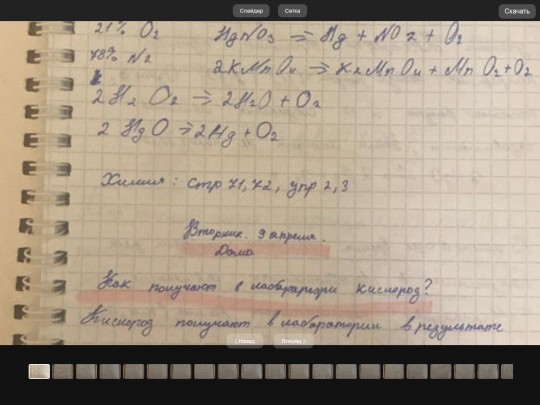 Слайдер Сетка Скачать
21% O2 HgNO3 => Hg + NO2 + O2
78% N2 2KMnO4 => K2MnO4 + MnO2 + O2
2H2O2 => 2H2O + O2
2 HgO => 2Hg + O2
Химия: стр 71, 72, упр 2, 3
Вторник. 9 апреля.
Дома
Как получают в лабораргори кислород?
Кислород получают в лаборатории в результате
‹ Назад Вперёд ›